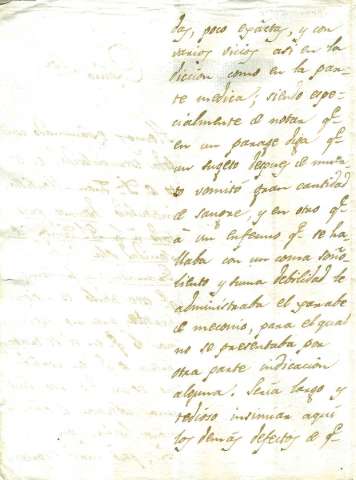 das, poco exactas, y con
varios vicios asi en la
diccion como en la par-
te medica; siendo espe-
cialmente de notar qᵉ
en un parage diga qᵉ
un sugeto despues de muer-
to vomitó gran cantidad
de sangre, y en otro qᵉ
á un enfermo qᵉ se ha-
llaba con un coma soño-
liento y suma debilidad le
administraba el xarabe
de meconio, para el qual
no se presentaba por
otra parte indicacion
alguna. Seria largo y
tedioso insinuar aqui
los demás defectos de qᵉ